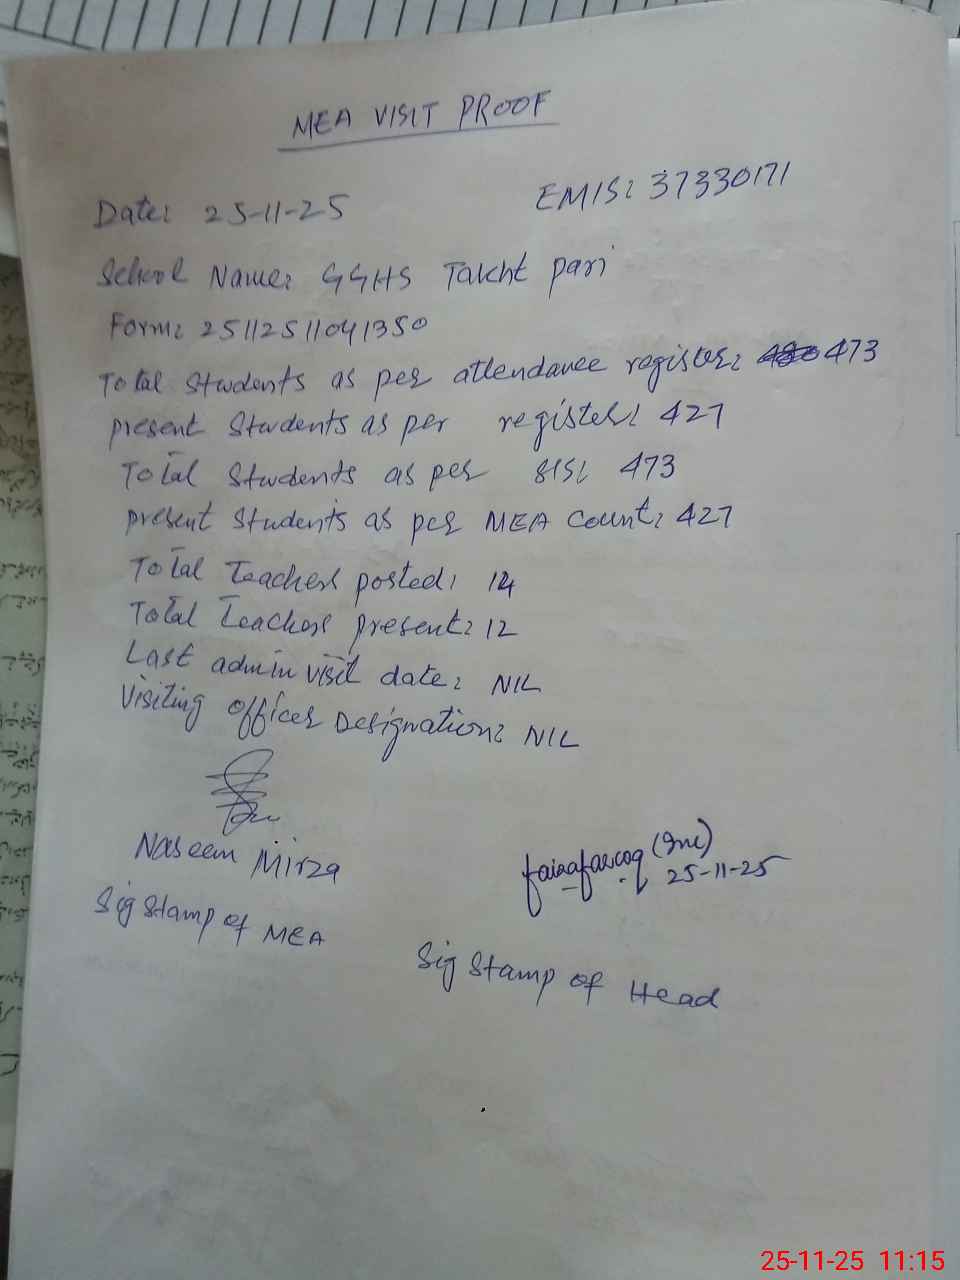 MEA VISIT PROOF
Date: 25-11-25 EMIS: 37330171
School Name: GGHS Takht pari
Form: 25112511041350
Total Students as per attendance register: 473
present Students as per register: 427
Total Students as per SIS: 473
present Students as per MEA count: 427
Total Teachers posted: 14
Total Teachers present: 12
Last admin visit date: NIL
Visiting officer Designation: NIL
Naseem Mirza
faizafarooq (Inc)
25-11-25
Sig Stamp of MEA
Sig Stamp of Head
25-11-25 11:15